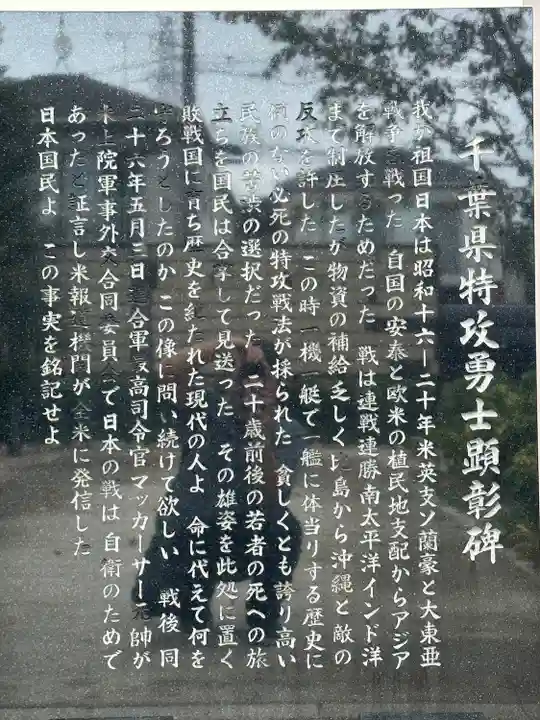 千葉県特攻勇士顕彰碑
我が祖国日本は昭和十六―二十年米英支ソ蘭豪と大東亜
戦争を戦った 自国の安泰と欧米の植民地支配からアジア
を解放するためだった 戦は連戦連勝南太平洋インド洋
まで制圧したが物資の補給乏しく 島から沖縄と敵の
反攻を許した この時一機一艇で一艦に体当りする歴史に
例のない必死の特攻戦法が採られた 貧しくとも誇り高い
民族の苦渋の選択だった 二十歳前後の若者の死への旅
立ちを国民は合掌して見送った その雄姿を此処に置く
敗戦国に育ち歴史を絶たれた現代の人よ 命に代えて何を
守ろうとしたのか この像に問い続けて欲しい 戦後 同
二十六年五月三日 連合軍最高司令官マッカーサー元帥が
米上院軍事外交合同委員会で日本の戦は 自衛のためで
あったと証言し米報道機門が全米に発信した
日本国民よ この事実を銘記せよ